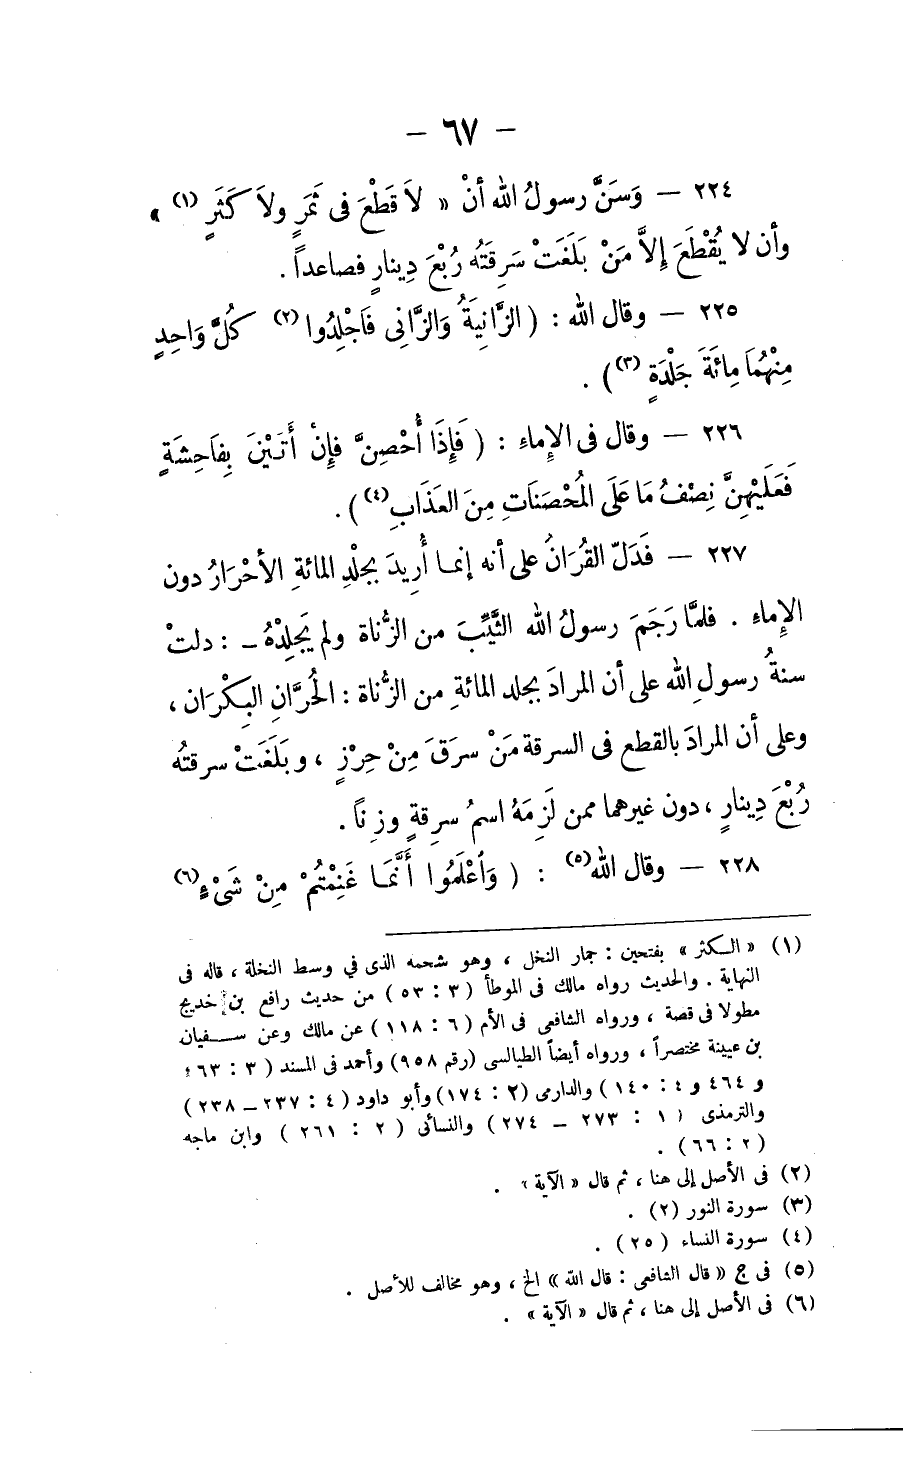 — ٦٧ —
٢٢٤ — وَسَنَّ رسولُ الله أنْ « لاَ قَطْعَ فى ثَمَرٍ ولاَ كَثَرٍ (١) »
وأن لا يُقْطَعَ إلاَّ مَنْ بَلَغَتْ سَرِقَتُه رُبْعَ دِينارٍ فصاعداً .
٢٢٥ — وقال الله : ( الزَّانِيَةُ وَالزَّانِى فَاجْلِدُوا (٢) كُلَّ وَاحِدٍ
مِنْهُمَا مِائَةَ جَلْدَةٍ (٣) ) .
٢٢٦ — وقال فى الإِماءِ : ( فَإِذَا أُحْصِنَّ فإِنْ أَتَيْنَ بِفَاحِشَةٍ
فَعَلَيْهِنَّ نِصْفُ مَا عَلَى المُحْصَنَاتِ مِنَ العَذَابِ (٤) ) .
٢٢٧ — فَدَلّ القُرَانُ على أنه إنما أُرِيدَ بجلْدِ المائةِ الأحْرَارُ دون
الإِماءِ . فلمَّا رَجَمَ رسولُ الله الثَّيِّبَ من الزُّناة ولم يَجلِدْهُ - : دلتْ
سنةُ رسولِ الله على أن المرادَ بجلد المائةِ من الزُّناة : الحُرَّانِ البِكْرَان ،
وعلى أن المرادَ بالقطع فى السرقة مَنْ سرَقَ مِنْ حِرْزٍ ، وبَلَغَتْ سرقتُه
رُبْعَ دِينارٍ ، دون غيرهما ممن لَزِمَهُ اسمُ سرِقةٍ وزِناً .
٢٢٨ — وقال الله (٥) : ( وَٱعْلَمُوا أَنَّمَا غَنِمْتُمْ مِنْ شَىْءٍ (٦)
(١) « الـكثر » بفتحين : جمار النخل ، وهو شحمه الذى في وسط النخلة ، قاله فى
النهاية . والحديث رواه مالك فى الموطأ ( ٣ : ٥٣ ) من حديث رافع بن خديج
مطولا فى قصة ، ورواه الشافعى فى الأم ( ٦ : ١١٨ ) عن مالك وعن سـفيان
بن عيينة مختصراً ، ورواه أيضاً الطيالسى (رقم ٩٥٨) وأحمد فى المسند ( ٣ : ٤٦٣
و ٤٦٤ و ٤ : ١٤٠ ) والدارمى (٢ : ١٧٤) وأبو داود ( ٤ : ٢٣٧ــ٢٣٨ )
والترمذى ( ١ : ٢٧٣ ــ ٢٧٤ ) والنسائى ( ٢ : ٢٦١ ) وابن ماجه
( ٢ : ٦٦ ) .
(٢) فى الأصل إلى هنا ، ثم قال « الآية » .
(٣) سورة النور (٢) .
(٤) سورة النساء ( ٢٥ ) .
(٥) فى ج « قال الشافعى : قال الله » الخ ، وهو مخالف للأصل .
(٦) فى الأصل إلى هنا ، ثم قال « الآية » .